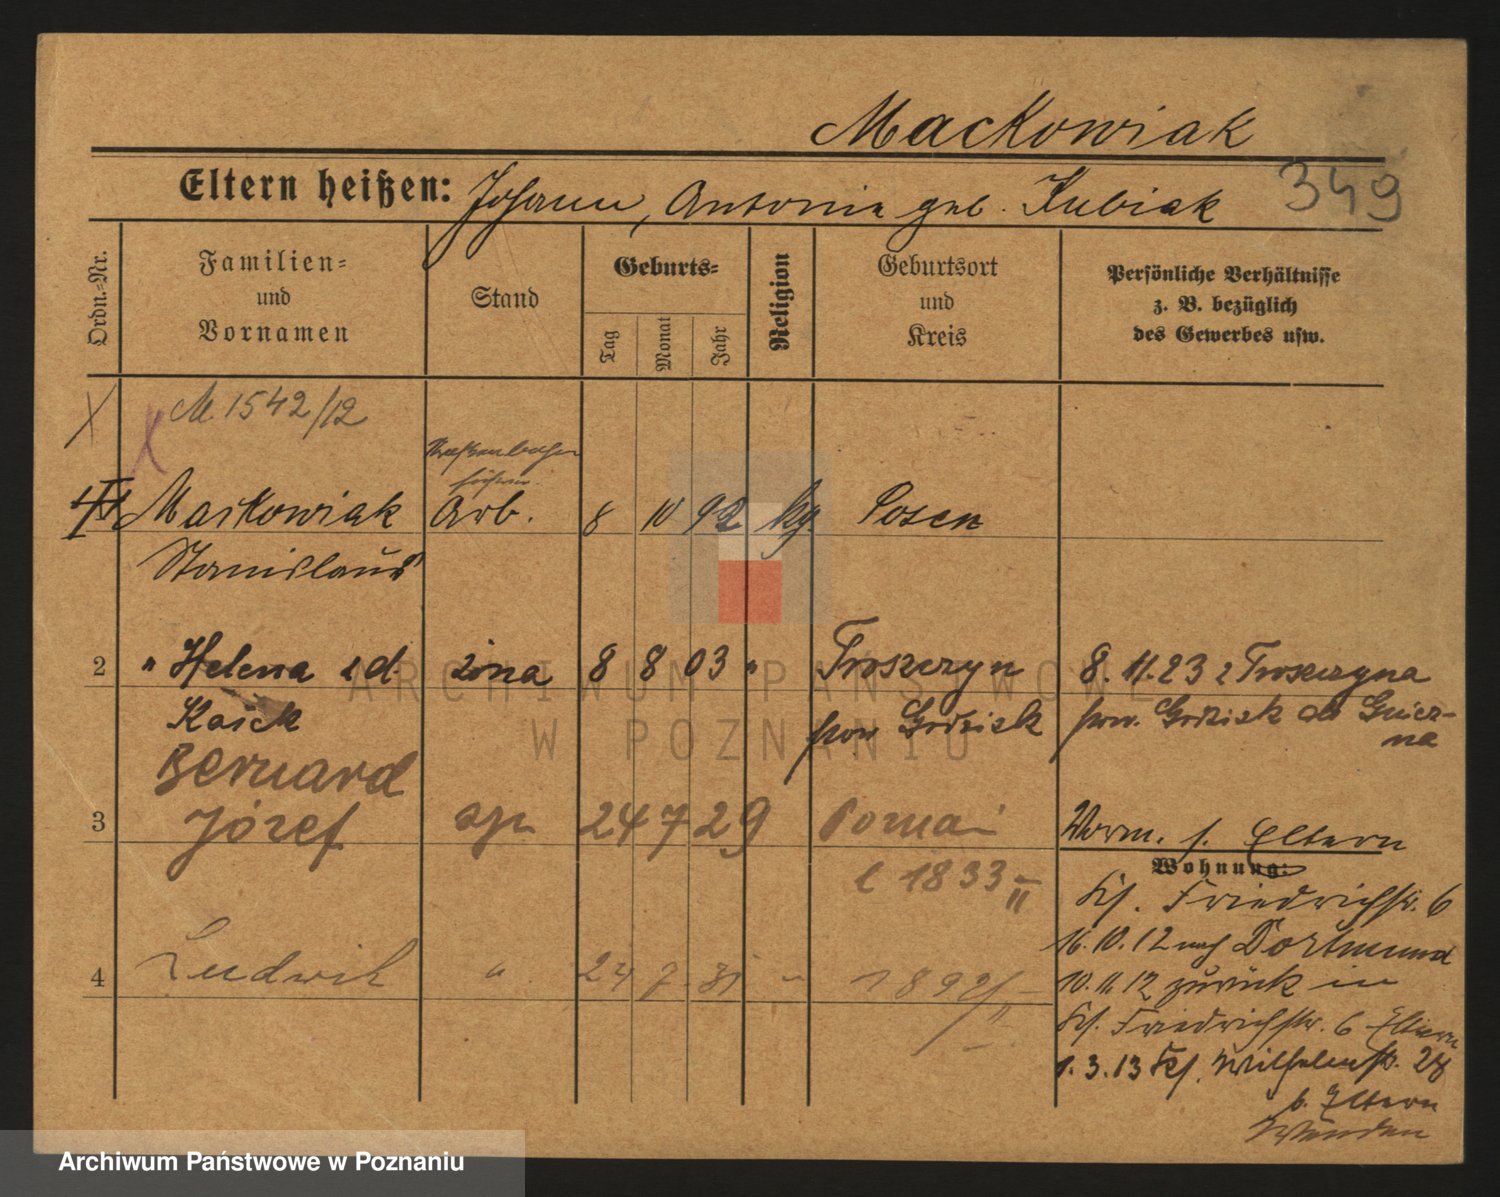 Mackowiak
349
Eltern heißen: Johann, Antonie geb. Kubiak
Ordn.-Nr.
Familien-
und
Vornamen
Stand
Geburts-
Tag
Monat
Jahr
Religion
Geburtsort
und
Kreis
Persönliche Verhältnisse
z. B. bezüglich
des Gewerbes usw.
M 1542/12
Mackowiak Arb. 8 10 92 kg Posen
Stanislaus
2 " Helena z d żona 8 8 03 " Troszczyn 8.11.23 z Troszczyna
Kasick pow Grodzisk pow. Grodzisk do Gniez-
na
Bernard
3 Józef syn 24 7 29 Poznań Vorm. s. Eltern
l 1833/II
Wohnung:
Friedrichstr. 6
16.10.12 nach Dortmund
4 Ludwik " 24 7 31 " 1892/II 10.11.12 zurück in
Friedrichstr. 6 Eltern
1.3.13 Wilhelmstr. 28
b. Eltern
ARCHIWUM PAŃSTWOWE
W POZNANIU
Archiwum Państwowe w Poznaniu